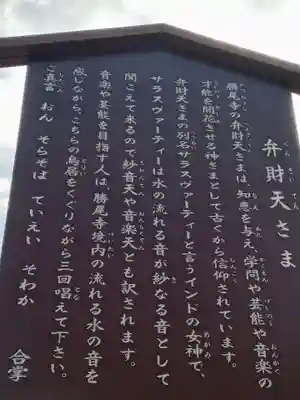 弁財天さま
勝尾寺の弁財天さまは知恵を与え、学問や芸能や音楽の
才能を開花させる神さまとして古くから信仰されています。
弁財天さまの別名サラスヴァーティーと言うインドの女神で、
サラスヴァーティーは水の流れる音が妙なる音として
聞こえて来るので妙音天や音楽天とも訳されます。
音楽や芸能を目指す人は、勝尾寺境内の流れる水の音を
感じながら、こちらの鳥居をくぐりながら三回唱えて下さい。
ご真言 おん そらそば ていえい そわか
合掌